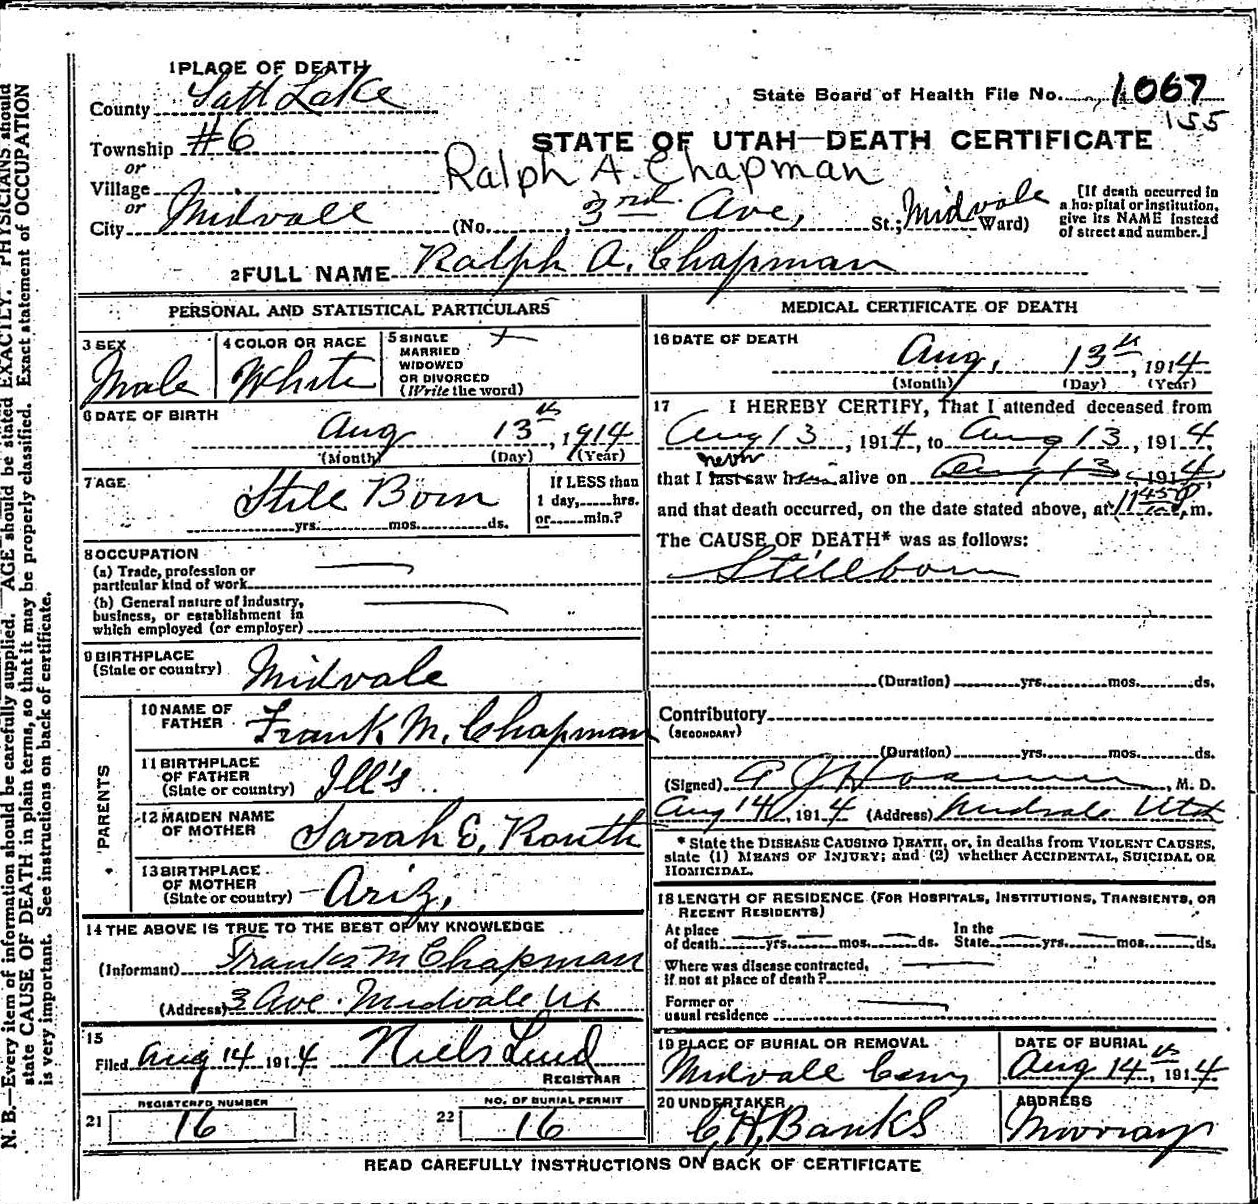 1 PLACE OF DEATH
County Salt Lake
State Board of Health File No. 1067
155
Township #6
or
STATE OF UTAH—DEATH CERTIFICATE
Village
or
Ralph A. Chapman
City Midvale (No. 3rd Ave, St.; Midvale Ward)
[If death occurred in
a hospital or institution,
give its NAME instead
of street and number.]
2 FULL NAME Ralph A. Chapman
PERSONAL AND STATISTICAL PARTICULARS
3 SEX
Male
4 COLOR OR RACE
White
5 SINGLE
MARRIED
WIDOWED
OR DIVORCED
(Write the word)
6 DATE OF BIRTH
Aug 13th, 1914
(Month) (Day) (Year)
7 AGE
Still Born
yrs. mos. ds.
If LESS than
1 day, hrs.
or min.?
8 OCCUPATION
(a) Trade, profession or
particular kind of work
(b) General nature of industry,
business, or establishment in
which employed (or employer)
9 BIRTHPLACE
(State or country) Midvale
PARENTS
10 NAME OF
FATHER Frank M. Chapman
11 BIRTHPLACE
OF FATHER
(State or country) Ill's.
12 MAIDEN NAME
OF MOTHER Sarah E. Routh
13 BIRTHPLACE
OF MOTHER
(State or country) Ariz.
14 THE ABOVE IS TRUE TO THE BEST OF MY KNOWLEDGE
(Informant) Frank M Chapman
(Address) 3 Ave. Midvale Ut
15
Filed Aug 14 1914 Niels Lind
REGISTRAR
21 REGISTERED NUMBER
16
22 NO. OF BURIAL PERMIT
16
MEDICAL CERTIFICATE OF DEATH
16 DATE OF DEATH
Aug, 13th, 1914
(Month) (Day) (Year)
17 I HEREBY CERTIFY, That I attended deceased from
Aug 13, 1914, to Aug 13, 1914,
never
that I last saw him alive on Aug 13 1914,
and that death occurred, on the date stated above, at 11 45 P. m.
The CAUSE OF DEATH* was as follows:
Stillborn
(Duration) yrs. mos. ds.
Contributory
(SECONDARY)
(Duration) yrs. mos. ds.
(Signed) , M. D.
Aug 14, 1914 (Address) Midvale Utah
* State the DISEASE CAUSING DEATH, or, in deaths from VIOLENT CAUSES,
state (1) MEANS OF INJURY; and (2) whether ACCIDENTAL, SUICIDAL OR
HOMICIDAL.
18 LENGTH OF RESIDENCE (FOR HOSPITALS, INSTITUTIONS, TRANSIENTS, OR
RECENT RESIDENTS)
At place
of death yrs. mos. ds.
In the
State yrs. mos. ds.
Where was disease contracted,
if not at place of death?
Former or
usual residence
19 PLACE OF BURIAL OR REMOVAL
Midvale Cemy
DATE OF BURIAL
Aug 14th, 1914
20 UNDERTAKER
C. H. Banks
ADDRESS
Murray
READ CAREFULLY INSTRUCTIONS ON BACK OF CERTIFICATE
N. B.—Every item of information should be carefully supplied. AGE should be stated EXACTLY. PHYSICIANS should
state CAUSE OF DEATH in plain terms, so that it may be properly classified. Exact statement of OCCUPATION
is very important. See instructions on back of certificate.